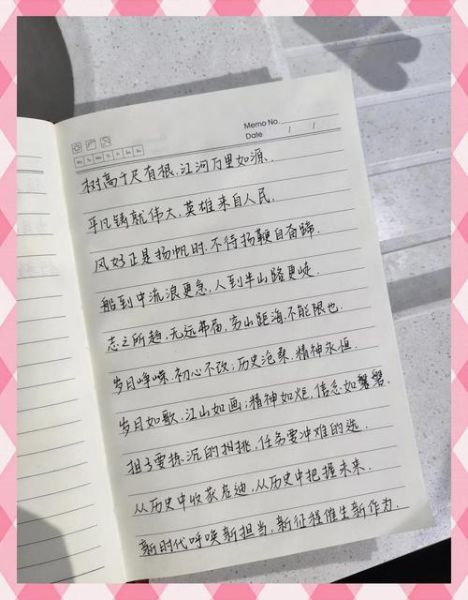 Memo No.
Date / /
Mo Tu We Th Fr Sa Su
树高千尺有根，江河万里如源、
平凡铸就伟大，英雄来自人民．
风好正是扬帆时．不待扬鞭自奋蹄．
船到中流浪更急，人到半山路更陡．
志之所趋，无远弗届，穷山距海．不能限也．
岁月峥嵘．初心不改；历史沧桑．精神永恒．
岁月如歌．江山如画；精神如炬，信念如磐．
担子要拣沉的担挑，任务要冲难的选．
从历史中收获启迪，从历史中把握未来．
新时代呼唤新担当，新征程催生新作为．